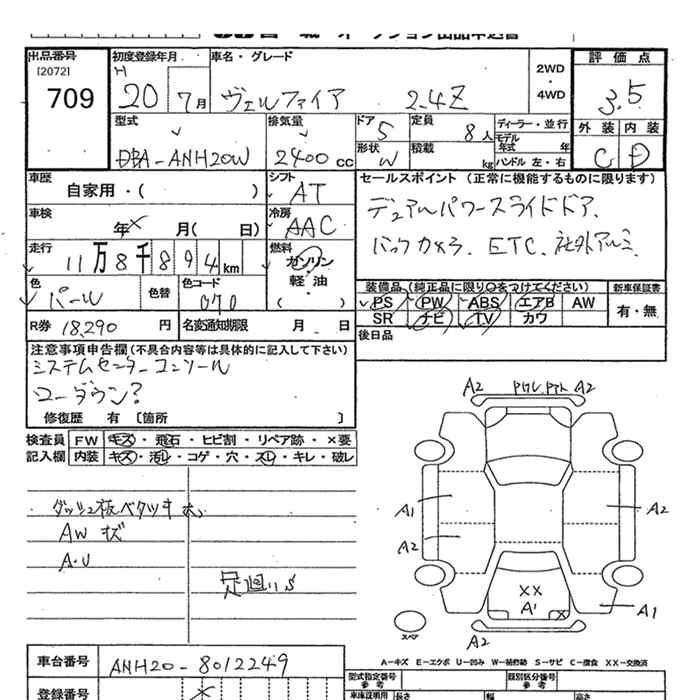 出品番号 初度登録年月 車名・グレード 2WD・4WD 評価点
[2072]
709 H 20 7月 ヴェルファイア 2.4Z 3.5
型式 排気量 ドア 5 定員 8人 ディーラー・並行 外装 内装
DBA-ANH20W 2400cc 形状 W 積載 kg モデル年式 年 ハンドル 左・右 C D
車歴 シフト セールスポイント(正常に機能するものに限ります)
自家用・( ) AT
車検 年 × 月( 日) 冷房 AAC デュアルパワースライドドア、
走行 11万8千894km 燃料 ガソリン・軽油・( ) バックカメラ、ETC、社外アルミ
色 色替 色コード 装備品(純正品に限り○をつけてください) 新車保証書
パール 070 PS PW ABS エアB AW 有・無
SR ナビ TV カワ
R券 18,290円 名変通知期限 月 日 後日品
注意事項申告欄(不具合内容等は具体的に記入して下さい)
システムセンターコンソール
ローダウン?
修復歴 有 〔箇所 〕
検査員 FW キズ・飛石・ヒビ割・リペア跡・×要
記入欄 内装 キズ・汚レ・コゲ・穴・スレ・キレ・破レ
ダッシュ板ベタツキ
AWキズ
A・U
足廻り
A2 A2
A1 A2
A2
XX
A1 X A1
スペア A2
A-キズ E-エクボ U-凹み W-補修跡 S-サビ C-腐食 XX-交換済
車台番号 ANH20-8012249 型式指定番号 参考 類別区分番号 参考
登録番号 × 車庫証明用 長さ 幅 高さ